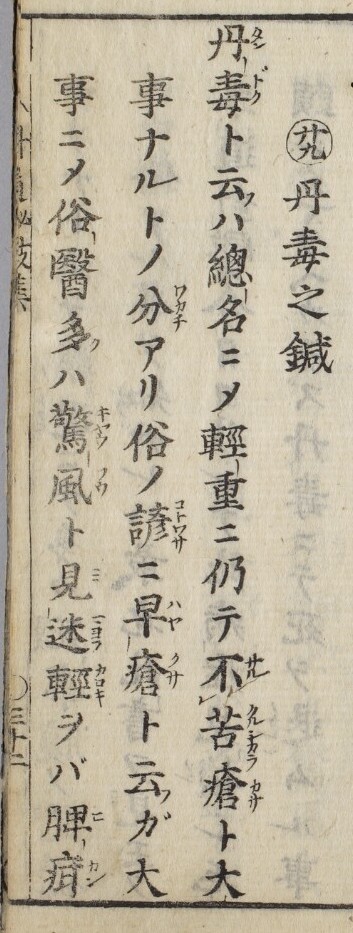 廿九 丹毒之鍼
丹毒ト云フハ總名ニメ輕重ニ仍テ不苦瘡ト大
事ナルトノ分アリ俗ノ諺ニ早瘡ト云フガ大
事ニメ俗醫多クハ驚風ト見迷輕ヲバ脾疳
三十二